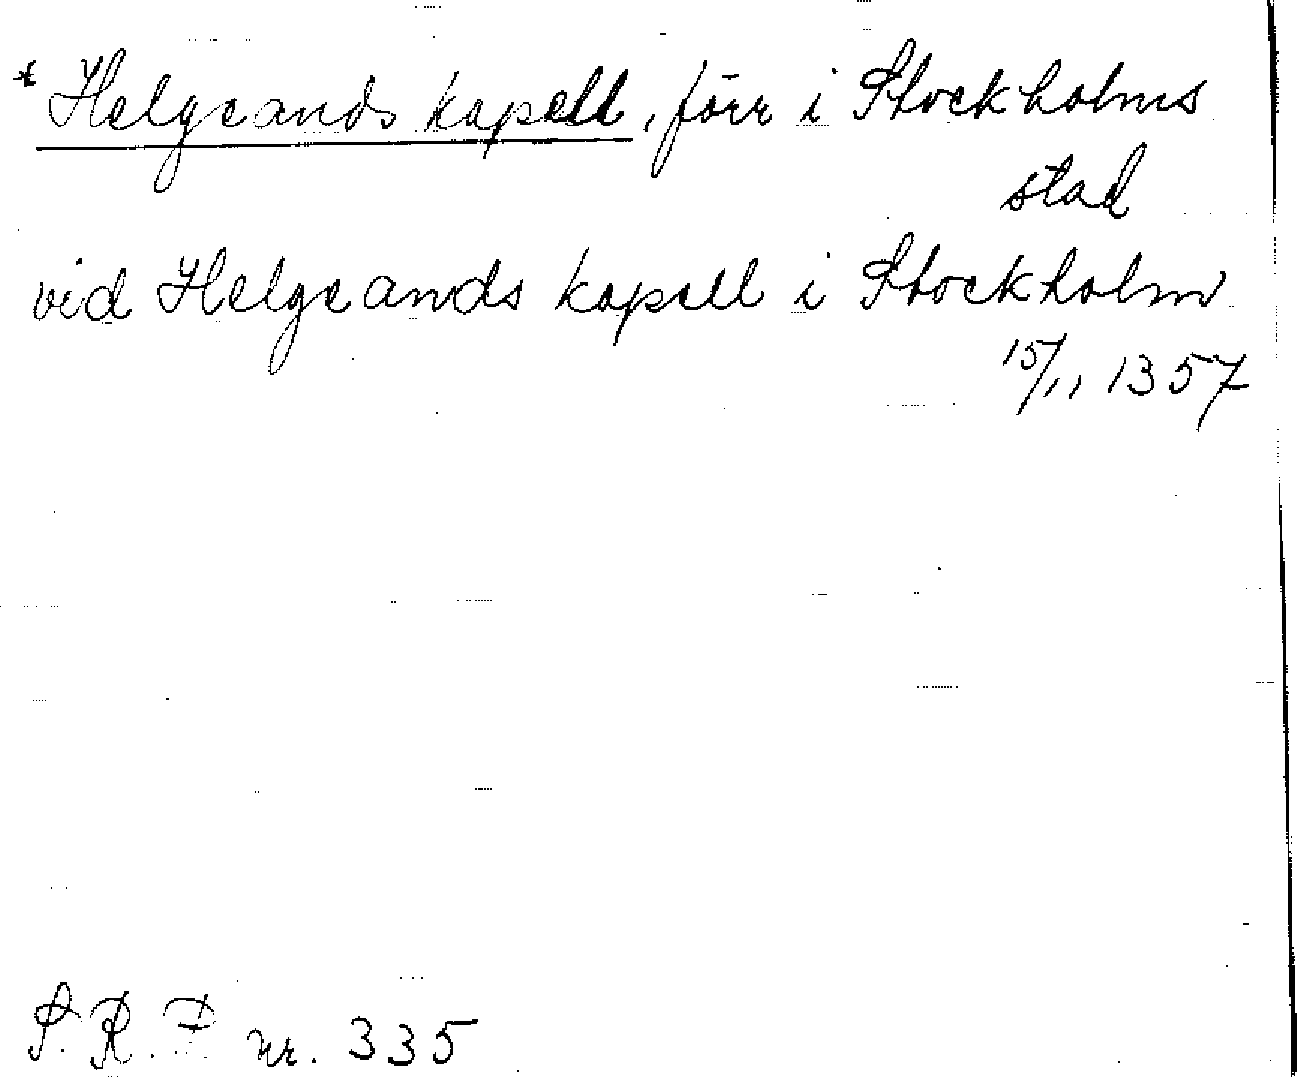 * Helgeands kapell, förr i Stockholms
stad
vid Helgeands kapell i Stockholm
15/11 1357
S.R.P. nr. 335